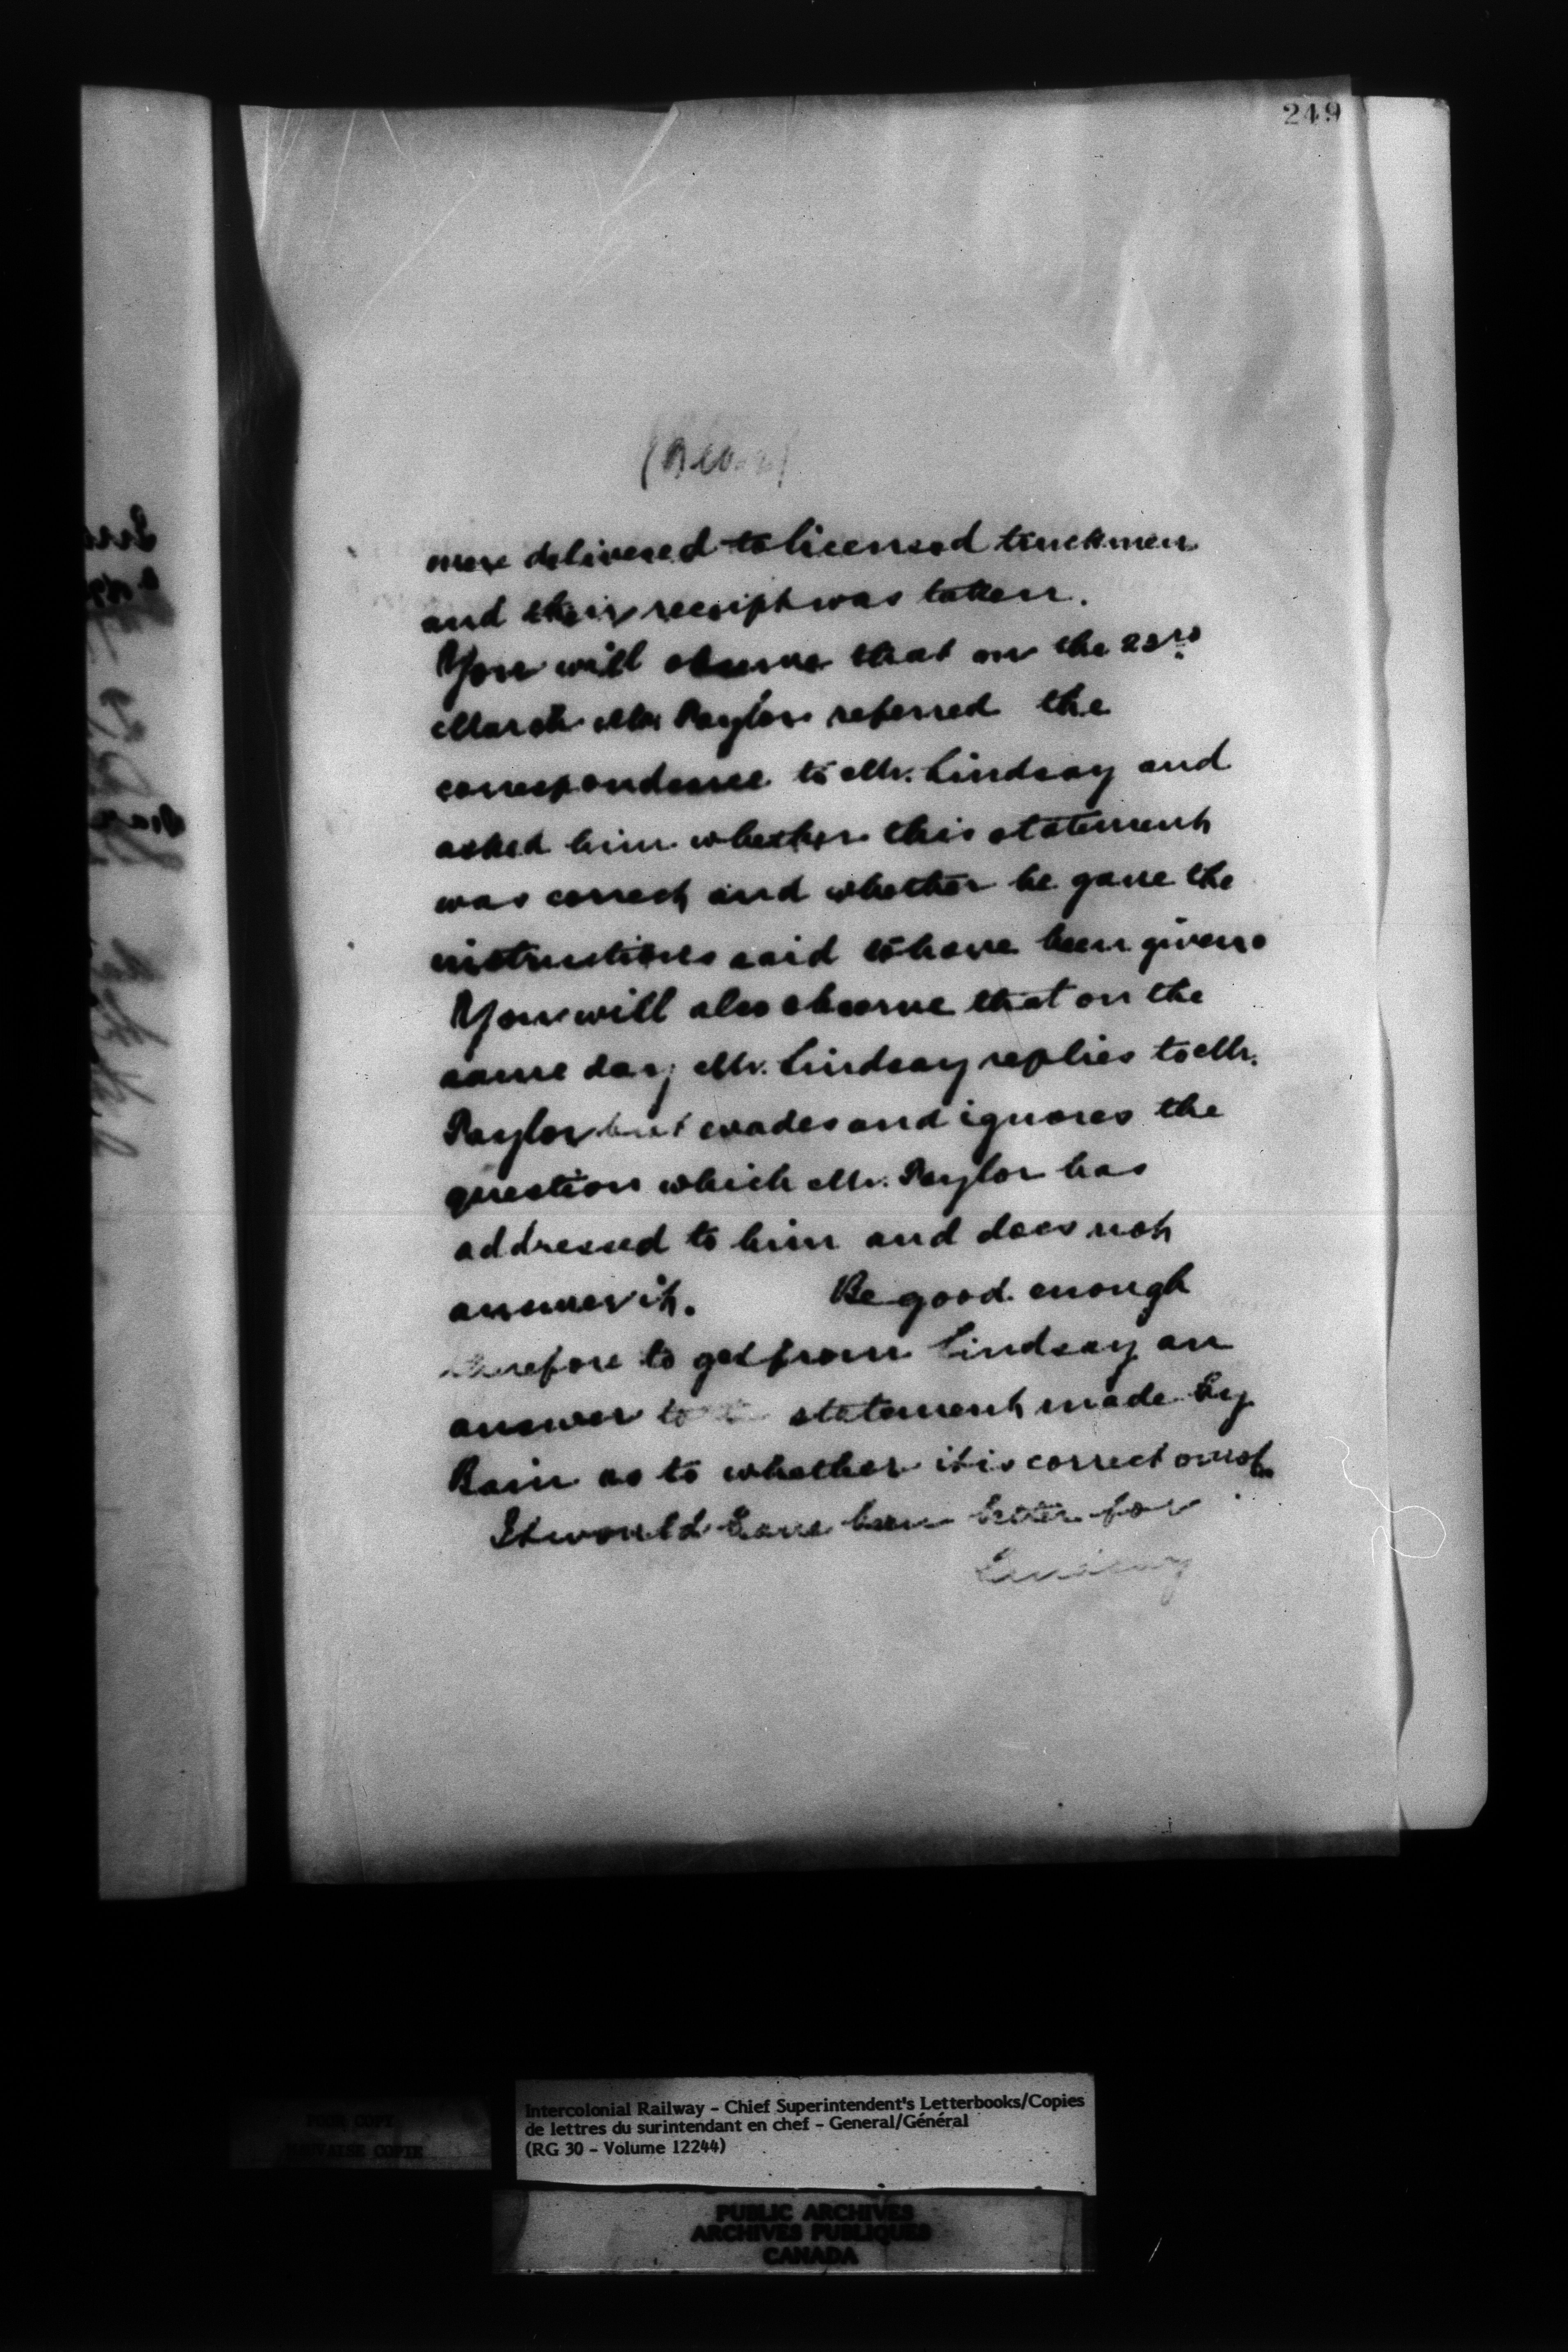 249
were delivered to licensed truckmen
and their receipt was taken.
You will observe that on the 23rd
March Mr. Taylor referred the
correspondence to Mr. Lindsay and
asked him whether this statement
was correct and whether he gave the
instructions said to have been given.
You will also observe that on the
same day Mr. Lindsay replies to Mr.
Taylor but evades and ignores the
question which Mr. Taylor has
addressed to him and does not
answer it. Be good enough
therefore to get from Lindsay an
answer to statement made by
Bain as to whether it is correct or not.
It would have been better for
Lindsay
POOR COPY
MAUVAISE COPIE
Intercolonial Railway - Chief Superintendent's Letterbooks/Copies
de lettres du surintendant en chef - General/Général
(RG 30 - Volume 12244)
PUBLIC ARCHIVES
ARCHIVES PUBLIQUES
CANADA